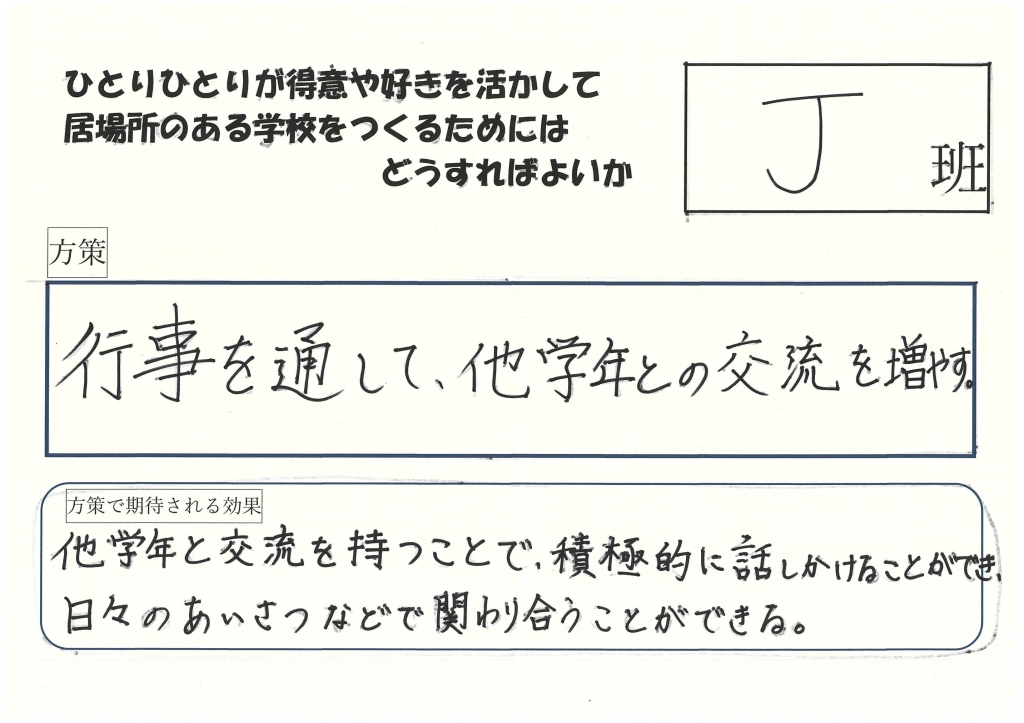 ひとりひとりが得意や好きを活かして
居場所のある学校をつくるためには
どうすればよいか
J 班
方策
行事を通して、他学年との交流を増やす。
方策で期待される効果
他学年と交流を持つことで、積極的に話しかけることができ、
日々のあいさつなどで関わり合うことができる。